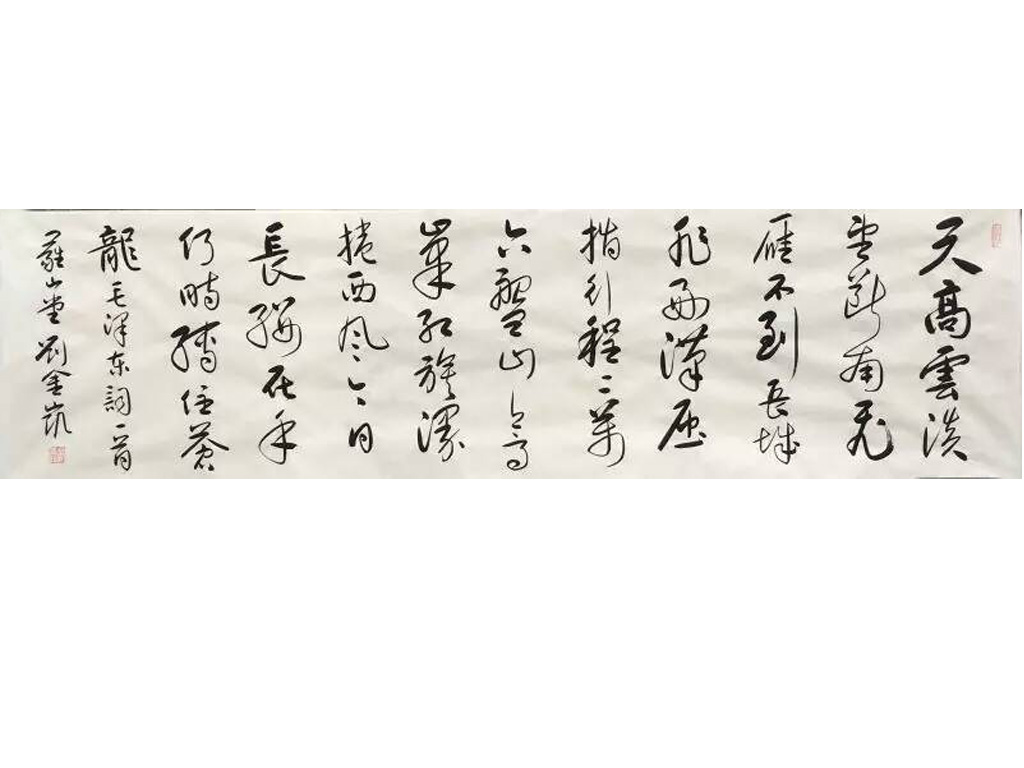 天高雲淡
望斷南飛
雁不到長城
非好漢屈
指行程二萬
六盤山上高
峯紅旗漫
捲西風今日
長纓在手
何時縛住蒼
龍 毛澤东詞一首
山堂 劉金凱